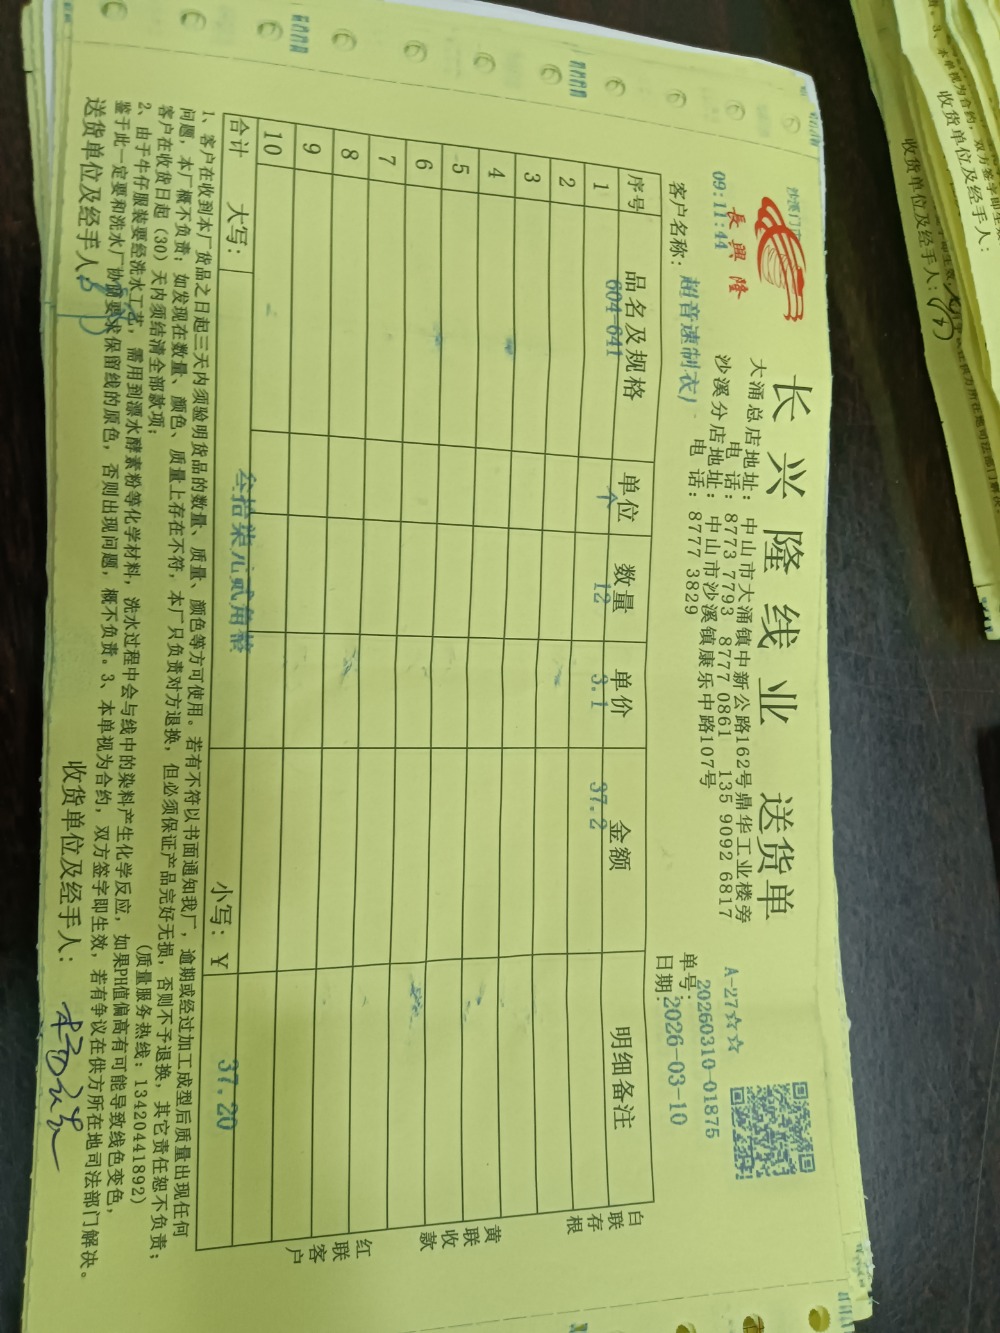 沙溪门
09:11:44
長興隆
长兴隆线业 送货单
大涌总店地址：中山市大涌镇中新公路162号鼎华工业楼旁
电 话：8773 7793 8777 0861 135 9092 6817
沙溪分店地址：中山市沙溪镇康乐中路107号
电 话：8777 3829
A-27☆☆
单号：20260310-01875
日期：2026-03-10
客户名称：超音速制衣厂
序号 品名及规格 单位 数量 单价 金额 明细备注
1 604-641 个 12 3.1 37.2
2
3
4
5
6
7
8
9
10
合计 大写：叁拾柒元贰角整 小写：￥ 37.20
白联存根
黄联收款
红联客户
1、客户在收到本厂货品之日起三天内须验明货品的数量、质量、颜色等方可使用。若有不符以书面通知我厂，逾期或经过加工成型后质量出现任何
问题，本厂概不负责；如发现在数量、颜色、质量上存在不符，本厂只负责对方退换，但必须保证产品完好无损，否则不予退换，其它责任恕不负责；
客户在收货日起（30）天内须结清全部款项；
（质量服务热线：13420441892）
2、由于牛仔服装要经洗水工艺，需用到漂水酵素粉等化学材料，洗水过程中会与线中的染料产生化学反应，如果PH值偏高有可能导致线色变色，
鉴于此一定要和洗水厂协商要求保留线的原色，否则出现问题，概不负责。3、本单视为合约，双方签字即生效，若有争议在供方所在地司法部门解决。
送货单位及经手人：
收货单位及经手人：
3、本单视为合约，双方签字即生效
收货单位及经手人：
收货单位及经手人：